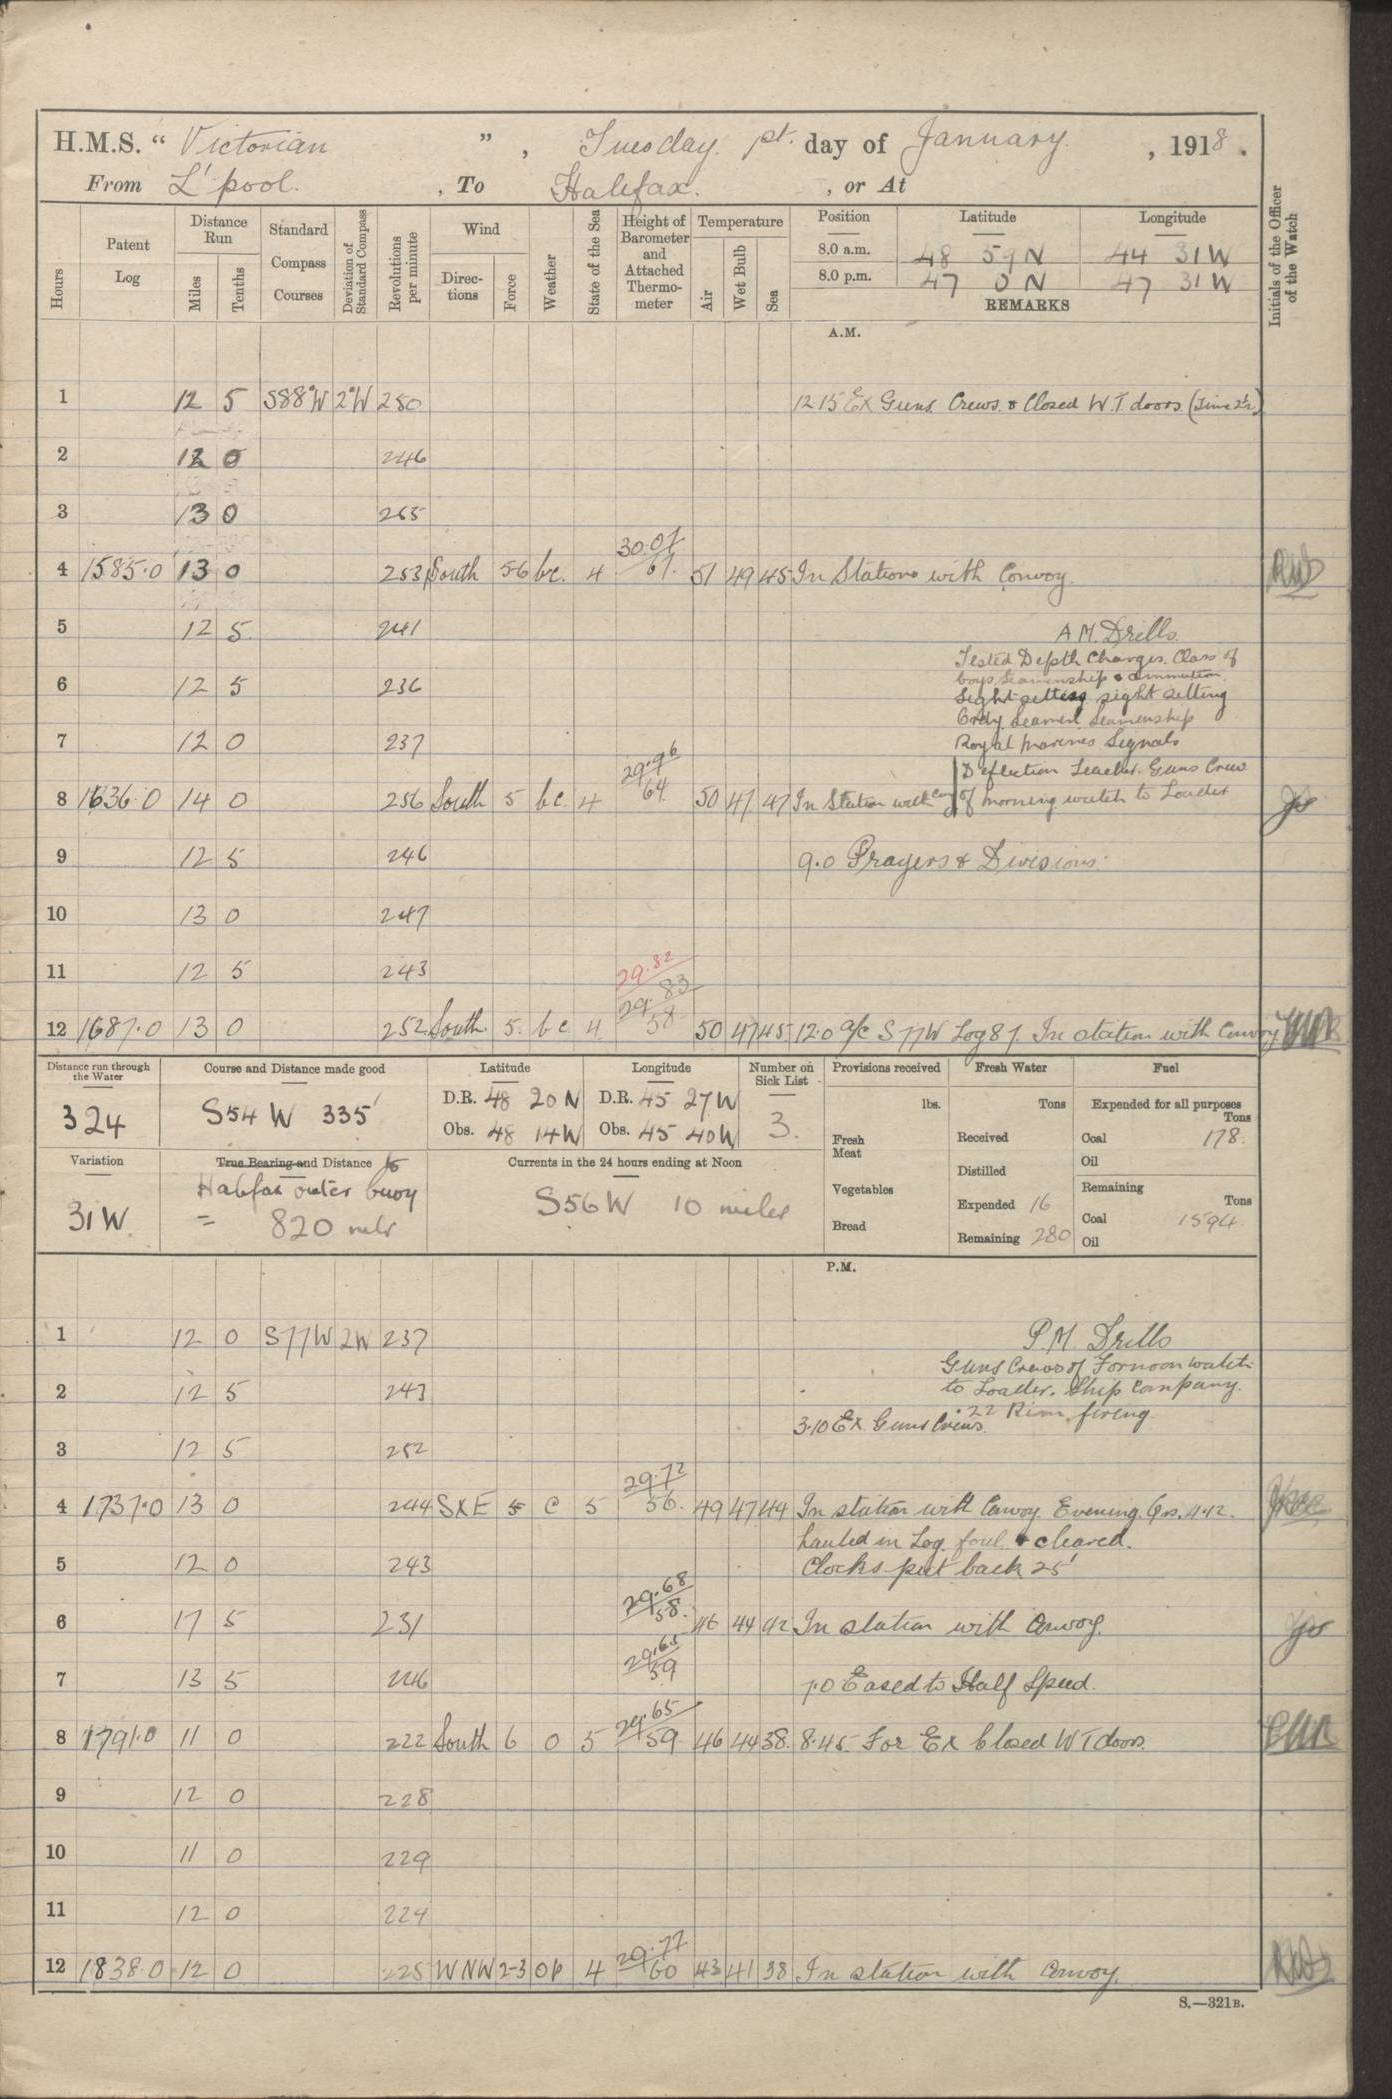 H.M.S. “ Victorian ” , Tuesday 1st. day of January , 1918 .
From L'pool. , To Halifax. , or At
Hours
Patent Log
Distance Run
Miles
Tenths
Standard Compass Courses
Deviation of Standard Compass
Revolutions per minute
Wind
Direc- tions
Force
Weather
State of the Sea
Height of Barometer and Attached Thermo- meter
Temperature
Air
Wet Bulb
Sea
Position Latitude Longitude
8.0 a.m. 48 59 N 44 31 W
8.0 p.m. 47 0 N 47 31 W
REMARKS
Initials of the Officer of the Watch
A.M.
1 12 5 S88°W 2°W 250 12 15 Ex Guns Crews & Closed W.T. doors
2 12 0 246
3 13 0 265
30.07
4 1585.0 13 0 253 South 5-6 bc. 4 61. 51 49 45 In Station with Convoy.
5 12 5 241 A M. Drills.
Tested Depth Charges. Class of
6 12 5 236 boys Seamenship & ammution.
Sight setting sight setting
Ordy Seamen Seamenship
7 12 0 237 Royal Marines Signals
29.96 Deflection Teacher. Guns Crew
8 1636.0 14 0 256 South 5 bc. 4 64. 50 47 47 In Station with Con of morning watch to Loader
9 12 5 246 9.0 Prayers & Divisions.
10 13 0 247
11 12 5 243 29.82
29.83
12 1687.0 13 0 252 South. 5. bc 4 58 50 47 45 12.0 a/c S 77W Log 87. In station with Convoy
Distance run through the Water
324
Course and Distance made good
S54 W 335'
Latitude
D.R. 48 20 N
Obs. 48 14 W
Longitude
D.R. 45 27 W
Obs. 45 40 W
Number on Sick List
3.
Provisions received
lbs.
Fresh Meat
Vegetables
Bread
Fresh Water
Tons
Received
Distilled
Expended 16
Remaining 280
Fuel
Expended for all purposes
Tons
Coal 178.
Oil
Remaining
Tons
Coal 1594
Oil
Variation
31 W.
True Bearing and Distance to
Halifax outer buoy
= 820 mls
Currents in the 24 hours ending at Noon
S56 W 10 miles
P.M.
1 12 0 S77W 2W 237 P.M. Drills
Guns Crews of Fornoon watch
2 12 5 243 to Loader. Ship Company.
.22 Rim firing
3.10 Ex Guns Crews.
3 12 5 252
29.72
4 1737.0 13 0 244 SXE 5 C 5 56. 49 47 44 In station with Convoy Evening Qrs. 4.12.
hauled in Log foul & cleared.
5 12 0 243 Clocks put back 25'
29.68
6 17 5 231 58. 46 44 42 In station with Convoy.
29.65
7 13 5 246 59 7.0 Eased to Half Speed.
29.65
8 1791.0 11 0 222 South 6 0 5 59 46 44 38. 8.45. For Ex Closed W T doors.
9 12 0 228
10 11 0 229
11 12 0 224
29.77
12 1838.0 12 0 225 WNW 2-3 op 4 60 43 41 38 In station with Convoy.
S.—321B.